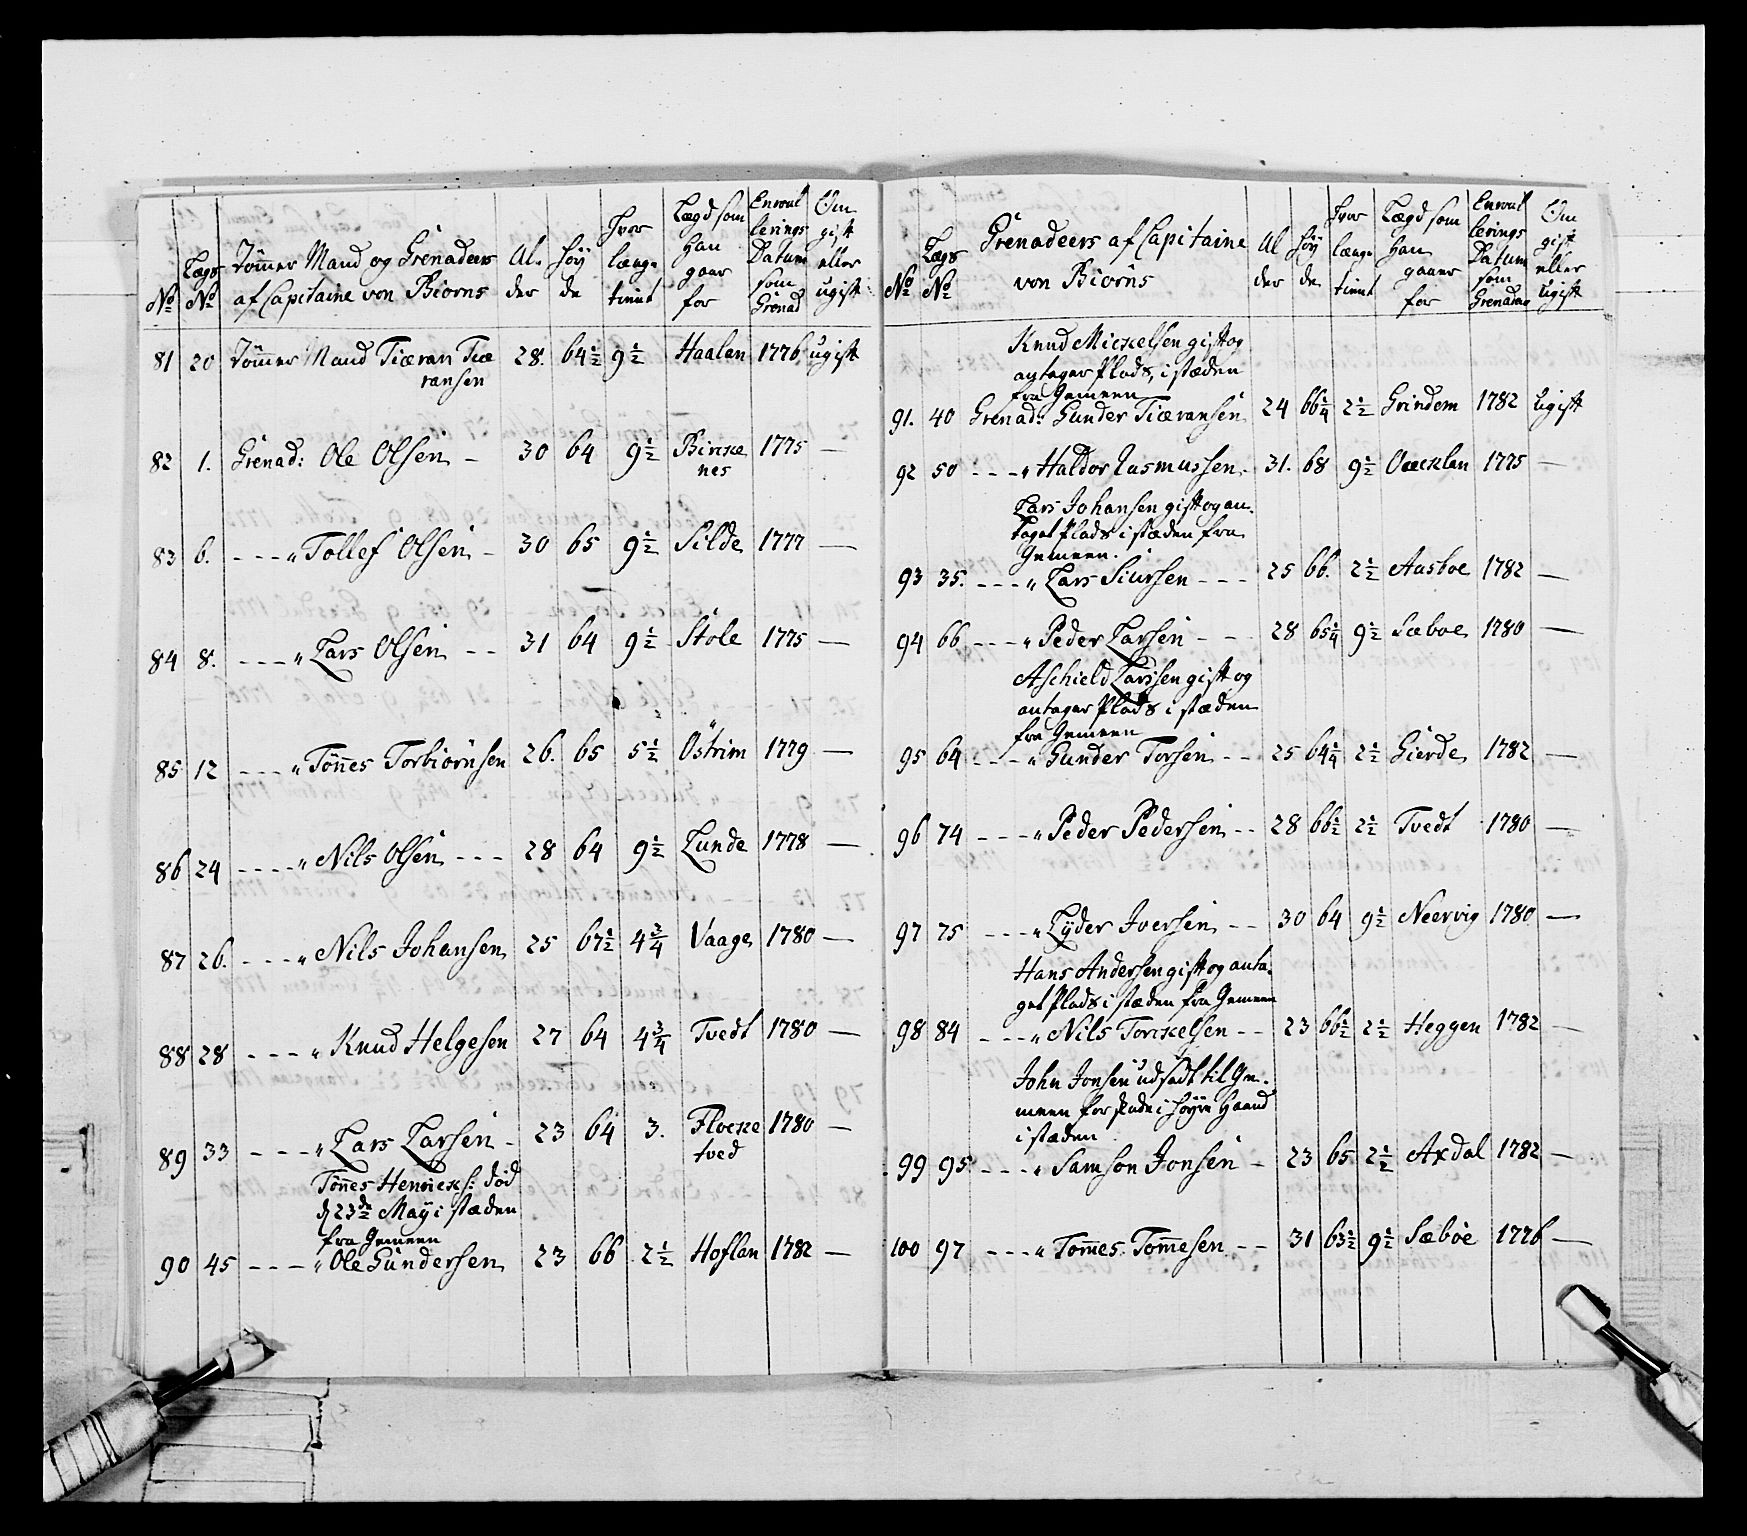 No Lægs No Tømmer Mand og Grenadeers af Capitaine von Biørns Al- der Høy de Hvor længe tient Lægd som han gaar for Enroul lerings Datum som Grenad Om gift eller ugift
81 20 Tømmer Mand Tiæran Tiæ ransen 28. 64½ 9½ Haalan 1776 ugift
82 1. Grenad: Ole Olsen - 30 64 9½ Bircke nes 1775 —
83 6. - - - " Tollef Olsen - 30 65 9½ Silde 1777 —
84 8. - - - " Lars Olsen - - 31 64 9½ Stole 1775 —
85 12 - - - " Tönnes Torbiörnsen 26. 65 5½ Östrim 1779 —
86 24 - - - - " Nils Olsen - - - 28 64 9½ Lunde 1778 —
87 26. - - - - " Nils Johansen 25 67½ 4¾ Vaage 1780 —
88 28 - - - " Knud Helgesen 27 64 4¾ Tvedt 1780 —
89 33 - - - " Lars Larsen - 23 64 3. Flocke tved 1780 —
Tönnes Henricks: död
d 23de May i stæden
fra Gemeen
90 45 - - - " Ole Gundersen 23 66 2½ Hoflan 1782 —
No Lægs No Grenadeers af Capitaine von Biörns Al der Höy de Hvor længe tient Lægd som Han gaaer for Enroul lerings Datum som Grenader Om gift eller ugift
Knud Mickelsen gift og
antager Plads, i stæden
fra Gemeen
91. 40 Grenad: Gunder Tiæransen 24 66¼ 2½ Grindem 1782 Ugift
92 50 - - - " Haldor Rasmussen 31. 68 9½ Oucklan 1775 —
Lars Johansen gift og an-
taget Plads i stæden fra
Gemeen.
93 35. - - - " Lars Siursen - - - 25 66. 2½ Aasboe 1782 —
94 66 - - - " Peder Larsen - - - 28 65¼ 9½ Sæboe 1780 —
Aschield Larssen gift og
antager Plads i stæden
fra Gemeen
95 64 - - - " Gunder Torsen - - 25 64¼ 2½ Gierde 1782 —
96 74 - - - " Peder Pedersen - - 28 66½ 2½ Tvedt 1780 —
97 75 - - - " Lyder Iversen - - 30 64 9½ Neervig 1780 —
Hans Andersen gift og anta-
get Plads i stæden fra Gemeen
98 84 - - - " Nils Torckelsen - - 23 66½ 2½ Heggen 1782 —
John Jonsen udsadt til Ge-
meen for skade i høyre Haand
i stæden
99 95 - - - " Samson Jonsen - 23 65 2½ Axdal 1782 —
100 97 - - - " Tom̄es Tom̄esen - - 31 63½ 9½ Sæböe 1776 —